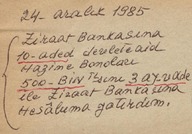 24 aralık 1985
Ziraat Bankasına
10-aded devlete aid
Hazine Bonoları
500-Bin 3 ay vade
ile Ziraat Bankasına
Hesabıma yatırdım.